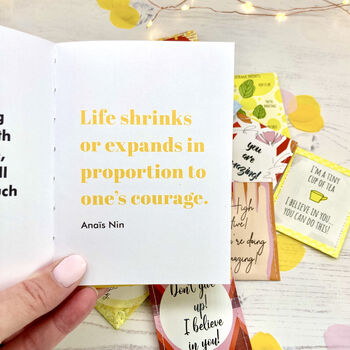 g
th
,
ll
uch
Life shrinks
or expands in
proportion to
one's courage.
Anaïs Nin
you
are
amazing!
I'M A TINY
CUP OF TEA
I BELIEVE IN YOU...
YOU CAN DO THIS!
High
five!
You're doing
amazing!
Don't give
up!
I believe
in you!